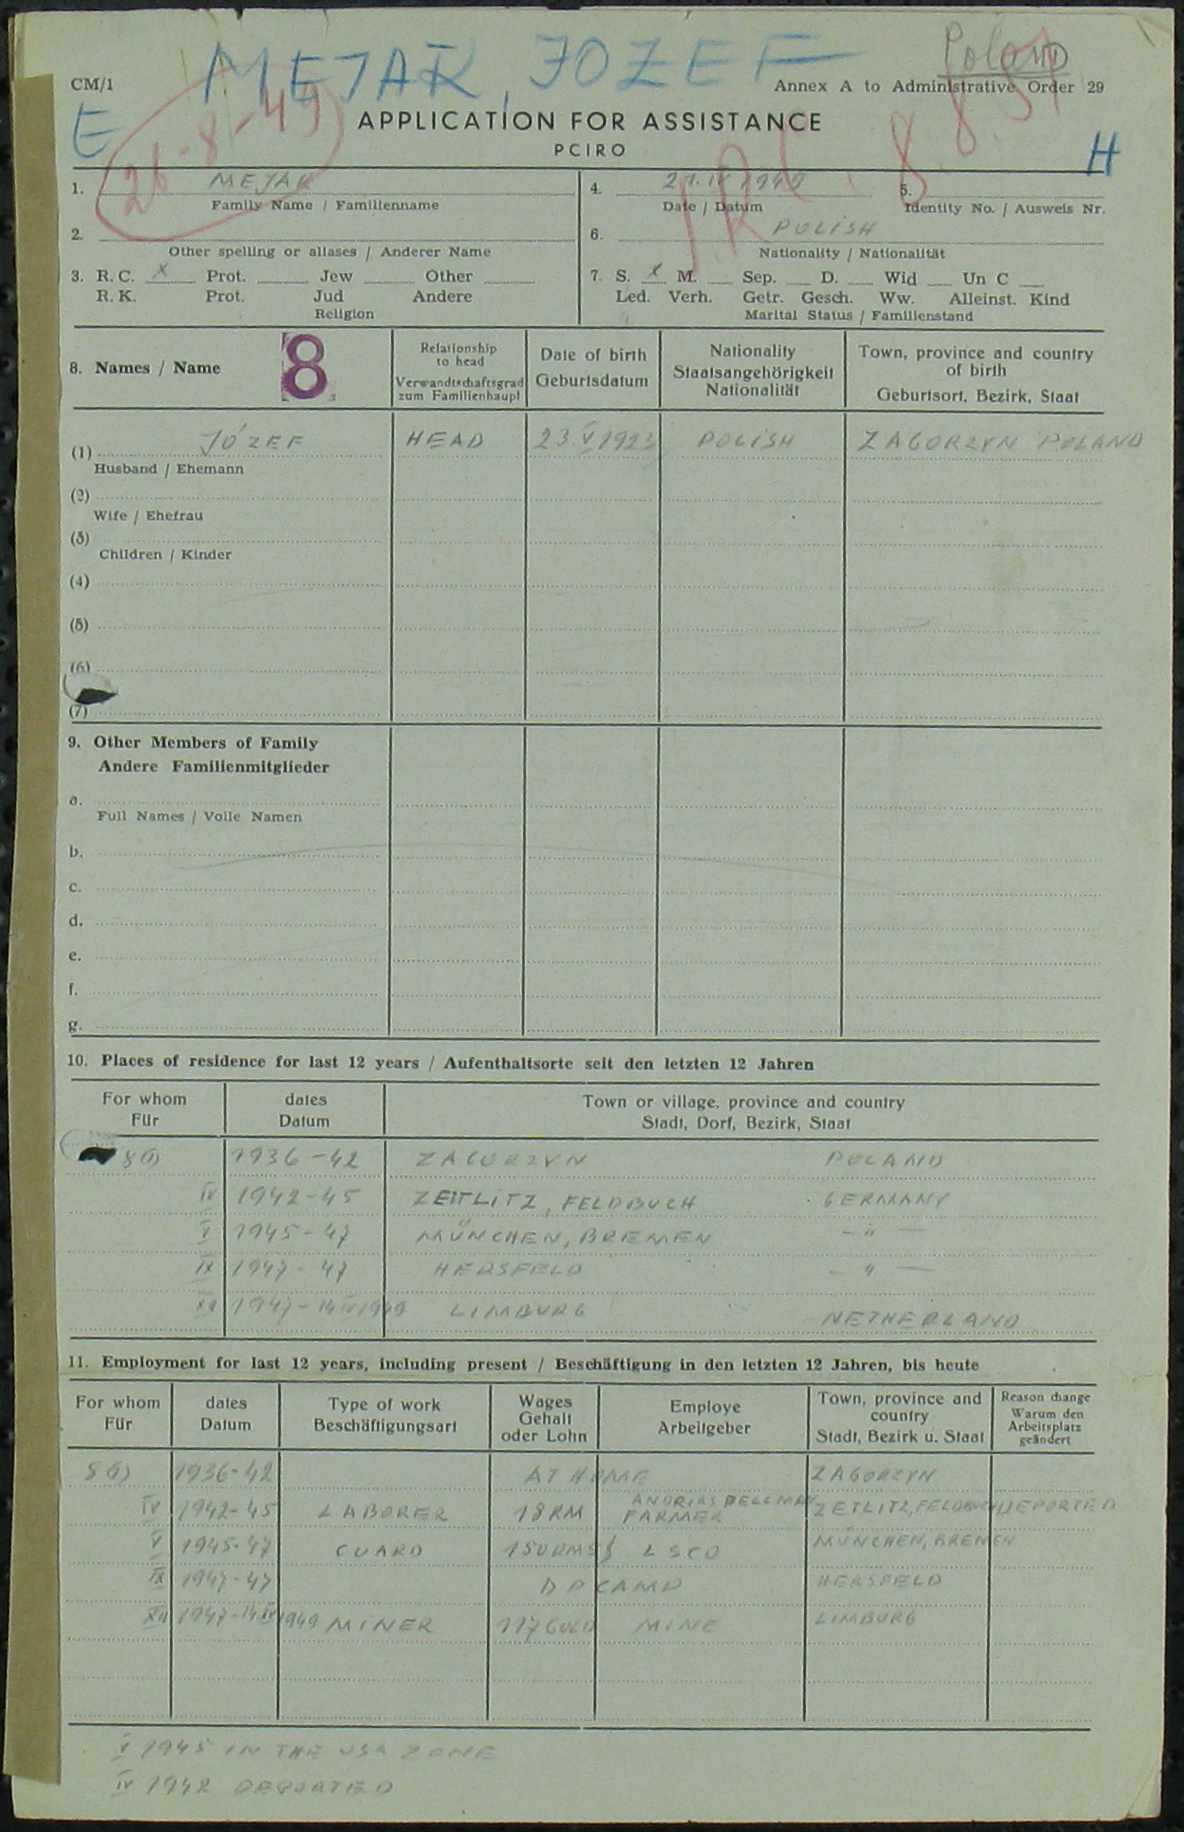 Poland
MEJAR, JOZEF
CM/1
Annex A to Administrative Order 29
E
26-8-49
APPLICATION FOR ASSISTANCE
PCIRO
H
1. MEJAR
Family Name / Familienname
4. 21.IV 1949
Date / Datum
5.
Identity No. / Ausweis Nr.
2.
Other spelling or aliases / Anderer Name
6. POLISH
Nationality / Nationalität
3. R. C. X Prot. Jew Other
R. K. Prot. Jud Andere
Religion
7. S. X M. Sep. D. Wid Un C
Led. Verh. Getr. Gesch. Ww. Alleinst. Kind
Marital Status / Familienstand
8. Names / Name
8
Relationship to head
Verwandtschaftsgrad zum Familienhaupt
Date of birth
Geburtsdatum
Nationality
Staatsangehörigkeit
Nationalität
Town, province and country of birth
Geburtsort, Bezirk, Staat
(1) JÓZEF HEAD 23 V 1923 POLISH ZAGORZYN POLAND
Husband / Ehemann
(2)
Wife / Ehefrau
(3)
Children / Kinder
(4)
(5)
(6)
(7)
9. Other Members of Family
Andere Familienmitglieder
a.
Full Names / Volle Namen
b.
c.
d.
e.
f.
g.
10. Places of residence for last 12 years / Aufenthaltsorte seit den letzten 12 Jahren
For whom
Für
dates
Datum
Town or village, province and country
Stadt, Dorf, Bezirk, Staat
8(1) 1936-42 ZAGORZYN POLAND
IV 1942-45 ZEITLITZ, FELDBUCH GERMANY
V 1945-47 MÜNCHEN, BREMEN -"-
IX 1947-47 HERSFELD -"-
XII 1947-14 IV 1949 LIMBURG NETHERLAND
11. Employment for last 12 years, including present / Beschäftigung in den letzten 12 Jahren, bis heute
For whom
Für
dates
Datum
Type of work
Beschäftigungsart
Wages
Gehalt
oder Lohn
Employe
Arbeitgeber
Town, province and country
Stadt, Bezirk u. Staat
Reason change
Warum den Arbeitsplatz geändert
8(1) 1936-42 AT HOME ZAGORZYN
IV 1942-45 LABORER 18 RM FARMER ZETLITZ, FELDBUCH DEPORTED
V 1945-47 GUARD 150 RMS LSCO MÜNCHEN, BREMEN
IX 1947-47 DP CAMP HERSFELD
XII 1947-14 IV 1949 MINER 117 GULD MINE LIMBURG
V 1945 IN THE USA ZONE
IV 1942 DEPORTED